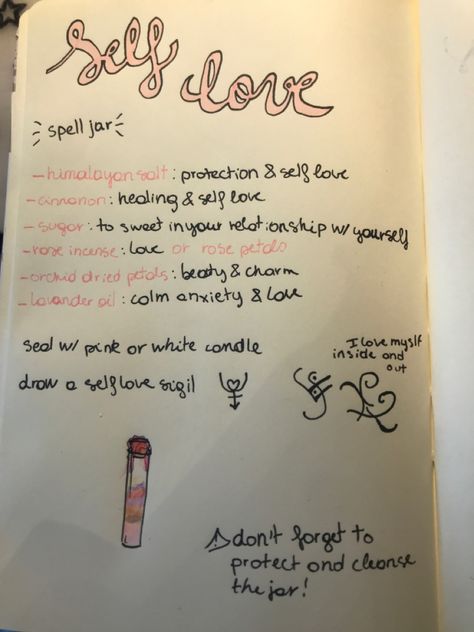 Self
love
spell jar
- himalayan salt: protection & self love
- cinnanon: healing & self love
- sugar: to sweet in your relationship w/ yourself
- rose incense: love or rose petals
- orchid dried petals: beaty & charm
- lavander oil: calm anxiety & love
seal w/ pink or white candle
I love myslf
inside and
out
draw a self love sigil
⚠ don't forget to
protect and cleanse
the jar!